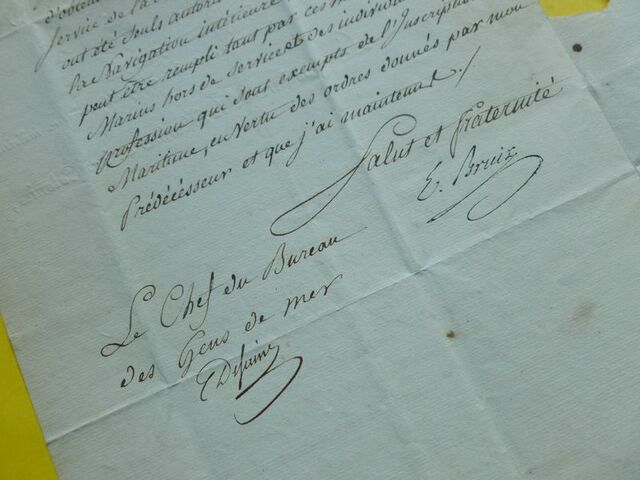 Service de la
ont été seuls autori
la Navigation intérieure
peut être rempli tant par ces m
Marins hors de service et des individus
profession qui sous exempts de l'Inscription
Maritime, en vertu des ordres donnés par mon
Prédécésseur et que j'ai maintenus./.
Salut et Fraternité
E. Bruix
Le Chef du Bureau
des Gens de mer